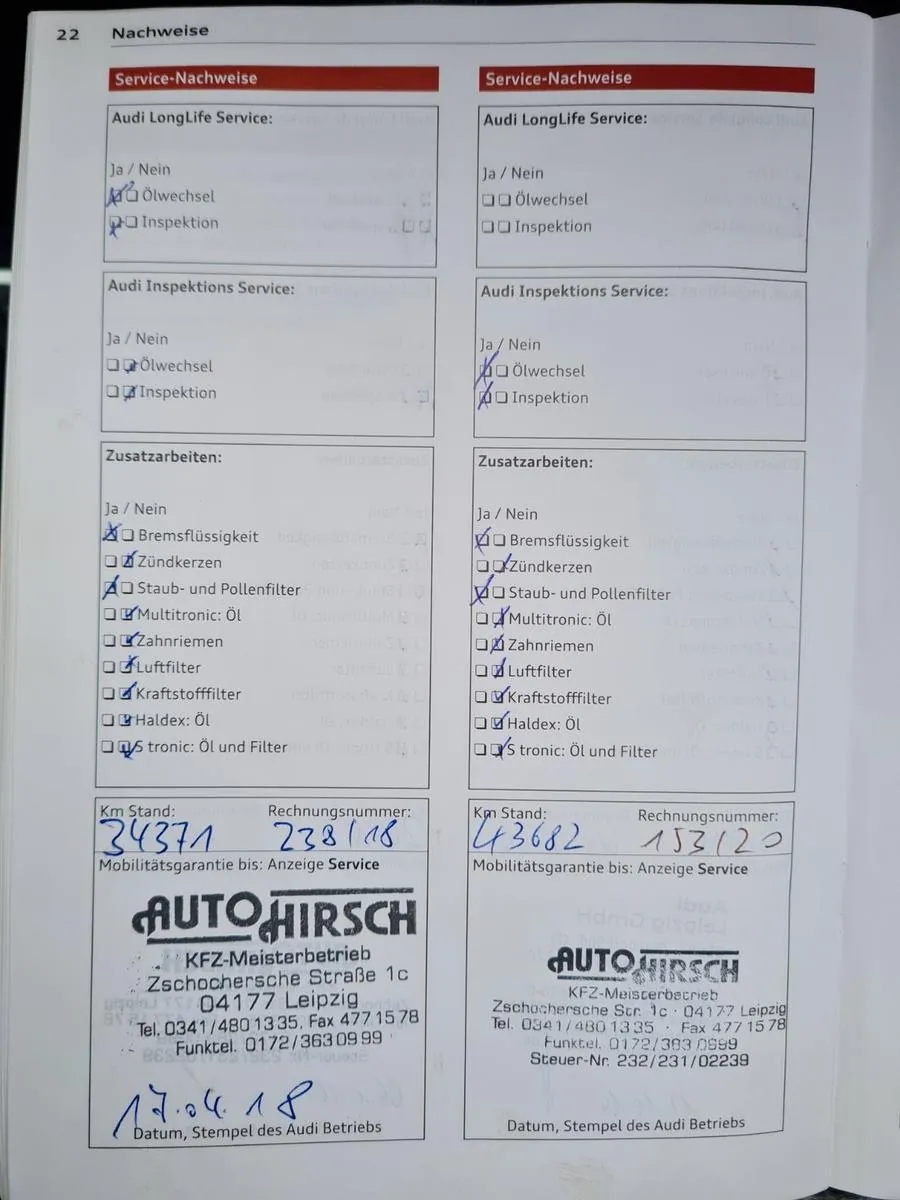 22 Nachweise
Service-Nachweise
Audi LongLife Service:
Ja / Nein
Ölwechsel
Inspektion
Audi Inspektions Service:
Ja / Nein
Ölwechsel
Inspektion
Zusatzarbeiten:
Ja / Nein
Bremsflüssigkeit
Zündkerzen
Staub- und Pollenfilter
Multitronic: Öl
Zahnriemen
Luftfilter
Kraftstofffilter
Haldex: Öl
S tronic: Öl und Filter
Km Stand: Rechnungsnummer:
34371 238/18
Mobilitätsgarantie bis: Anzeige Service
AUTO HIRSCH
KFZ-Meisterbetrieb
Zschochersche Straße 1c
04177 Leipzig
Tel. 0341/480 13 35, Fax 477 15 78
Funktel. 0172/363 09 99
17.04.18
Datum, Stempel des Audi Betriebs
Service-Nachweise
Audi LongLife Service:
Ja / Nein
Ölwechsel
Inspektion
Audi Inspektions Service:
Ja / Nein
Ölwechsel
Inspektion
Zusatzarbeiten:
Ja / Nein
Bremsflüssigkeit
Zündkerzen
Staub- und Pollenfilter
Multitronic: Öl
Zahnriemen
Luftfilter
Kraftstofffilter
Haldex: Öl
S tronic: Öl und Filter
Km Stand: Rechnungsnummer:
43682 153/20
Mobilitätsgarantie bis: Anzeige Service
AUTO HIRSCH
KFZ-Meisterbetrieb
Zschochersche Str. 1c · 04177 Leipzig
Tel. 0341/480 13 35 · Fax 477 15 78
Funktel. 0172/363 0999
Steuer-Nr. 232/231/02239
Datum, Stempel des Audi Betriebs